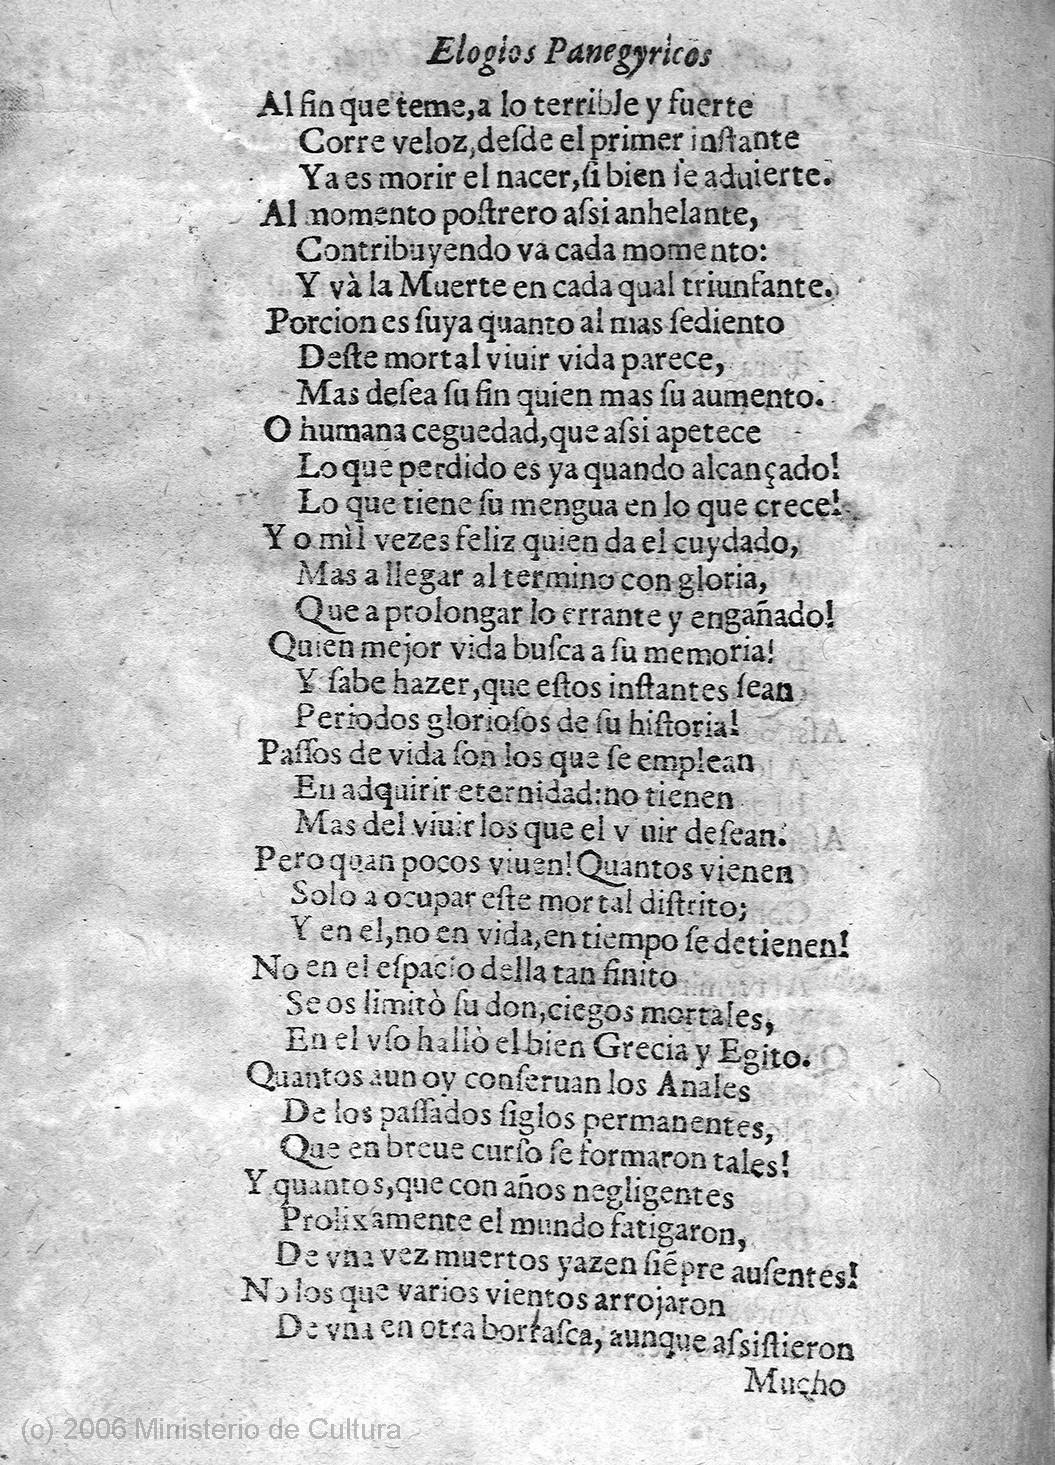 Elogios Panegyricos
Al fin que teme,a lo terrible y fuerte
Corre veloz,desde el primer instante
Ya es morir el nacer,si bien se aduierte.
Al momento postrero assi anhelante,
Contribuyendo va cada momento:
Y và la Muerte en cada qual triunfante.
Porcion es suya quanto al mas sediento
Deste mortal viuir vida parece,
Mas desea su fin quien mas su aumento.
O humana ceguedad,que assi apetece
Lo que perdido es ya quando alcançado!
Lo que tiene su mengua en lo que crece!
Y o mil vezes feliz quien da el cuydado,
Mas a llegar al termino con gloria,
Que a prolongar lo errante y engañado!
Quien mejor vida busca a su memoria!
Y sabe hazer,que estos instantes sean
Periodos gloriosos de su historia!
Passos de vida son los que se emplean
En adquirir eternidad:no tienen
Mas del viuir los que el v uir desean.
Pero quan pocos viuen!Quantos vienen
Solo a ocupar este mortal distrito;
Y en el,no en vida,en tiempo se detienen!
No en el espacio della tan finito
Se os limitò su don,ciegos mortales,
En el vso hallò el bien Grecia y Egito.
Quantos aun oy conseruan los Anales
De los passados siglos permanentes,
Que en breue curso se formaron tales!
Y quantos,que con años negligentes
Prolixamente el mundo fatigaron,
De vna vez muertos yazen siẽpre ausentes!
No los que varios vientos arrojaron
De vna en otra borrasca, aunque assistieron
Mucho
(c) 2006 Ministerio de Cultura